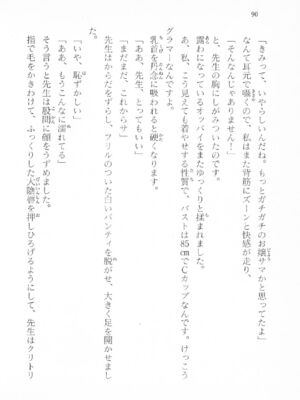 90
「きみって、いやらしいんだね。もっとガチガチのお嬢サマかと思ってたよ」
なんて耳元で囁くので、私はまた背筋にズーンと快感が走り、
「そんなんじゃありません!」
と、先生の胸にしがみつきました。
露わになっているオッパイをまたゆっくりと揉まれました。
あ、私、こう見えても着やせする性質で、バストは85cmでCカップなんです。けっこう
グラマーなんですよ。
乳首を丹念に吸われると硬くなります。
「ああ、先生、とっても……」
「まだまだ、これからサ」
先生はからだをずらし、フリルのついた白いパンティを脱がせ、大きく足を開かせまし
た。
「ああ、もうこんなに濡れてる」
「いや、恥ずかしい」
そう言うと先生は股間に顔をうずめました。
指で毛をかきわけて、ふっくりした大陰唇を押しひろげるようにして、先生はクリトリ